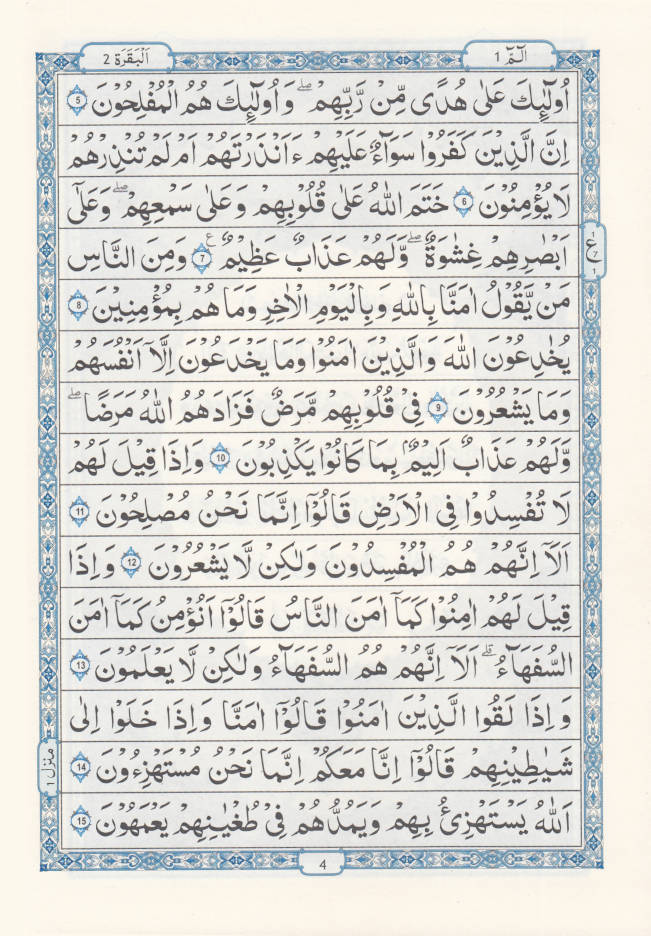 الٓمّٓ 1
اَلْبَقَرَة 2
اُولٰٓئِكَ عَلٰى هُدًى مِّنْ رَّبِّهِمْ ۖ وَاُولٰٓئِكَ هُمُ الْمُفْلِحُوْنَ 5
اِنَّ الَّذِيْنَ كَفَرُوْا سَوَآءٌ عَلَيْهِمْ ءَاَنْذَرْتَهُمْ اَمْ لَمْ تُنْذِرْهُمْ
لَا يُؤْمِنُوْنَ 6 خَتَمَ اللّٰهُ عَلٰى قُلُوْبِهِمْ وَعَلٰى سَمْعِهِمْ ۖ وَعَلٰٓى
اَبْصٰرِهِمْ غِشٰوَةٌ ۖ وَّلَهُمْ عَذَابٌ عَظِيْمٌ 7 ع وَمِنَ النَّاسِ
ع
1
7
1
مَنْ يَّقُوْلُ اٰمَنَّا بِاللّٰهِ وَبِالْيَوْمِ الْاٰخِرِ وَمَا هُمْ بِمُؤْمِنِيْنَ 8
يُخٰدِعُوْنَ اللّٰهَ وَالَّذِيْنَ اٰمَنُوْا وَمَا يَخْدَعُوْنَ اِلَّآ اَنْفُسَهُمْ
وَمَا يَشْعُرُوْنَ 9 فِيْ قُلُوْبِهِمْ مَّرَضٌ فَزَادَهُمُ اللّٰهُ مَرَضًا ۖ
وَّلَهُمْ عَذَابٌ اَلِيْمٌۢ بِمَا كَانُوْا يَكْذِبُوْنَ 10 وَاِذَا قِيْلَ لَهُمْ
لَا تُفْسِدُوْا فِى الْاَرْضِ قَالُوْٓا اِنَّمَا نَحْنُ مُصْلِحُوْنَ 11
اَلَآ اِنَّهُمْ هُمُ الْمُفْسِدُوْنَ وَلٰكِنْ لَّا يَشْعُرُوْنَ 12 وَاِذَا
قِيْلَ لَهُمْ اٰمِنُوْا كَمَآ اٰمَنَ النَّاسُ قَالُوْٓا اَنُؤْمِنُ كَمَآ اٰمَنَ
السُّفَهَآءُ ۗ اَلَآ اِنَّهُمْ هُمُ السُّفَهَآءُ وَلٰكِنْ لَّا يَعْلَمُوْنَ 13
وَاِذَا لَقُوا الَّذِيْنَ اٰمَنُوْا قَالُوْٓا اٰمَنَّا وَاِذَا خَلَوْا اِلٰى
شَيٰطِيْنِهِمْ قَالُوْٓا اِنَّا مَعَكُمْ اِنَّمَا نَحْنُ مُسْتَهْزِءُوْنَ 14
منزل 1
اَللّٰهُ يَسْتَهْزِئُ بِهِمْ وَيَمُدُّهُمْ فِيْ طُغْيٰنِهِمْ يَعْمَهُوْنَ 15
4